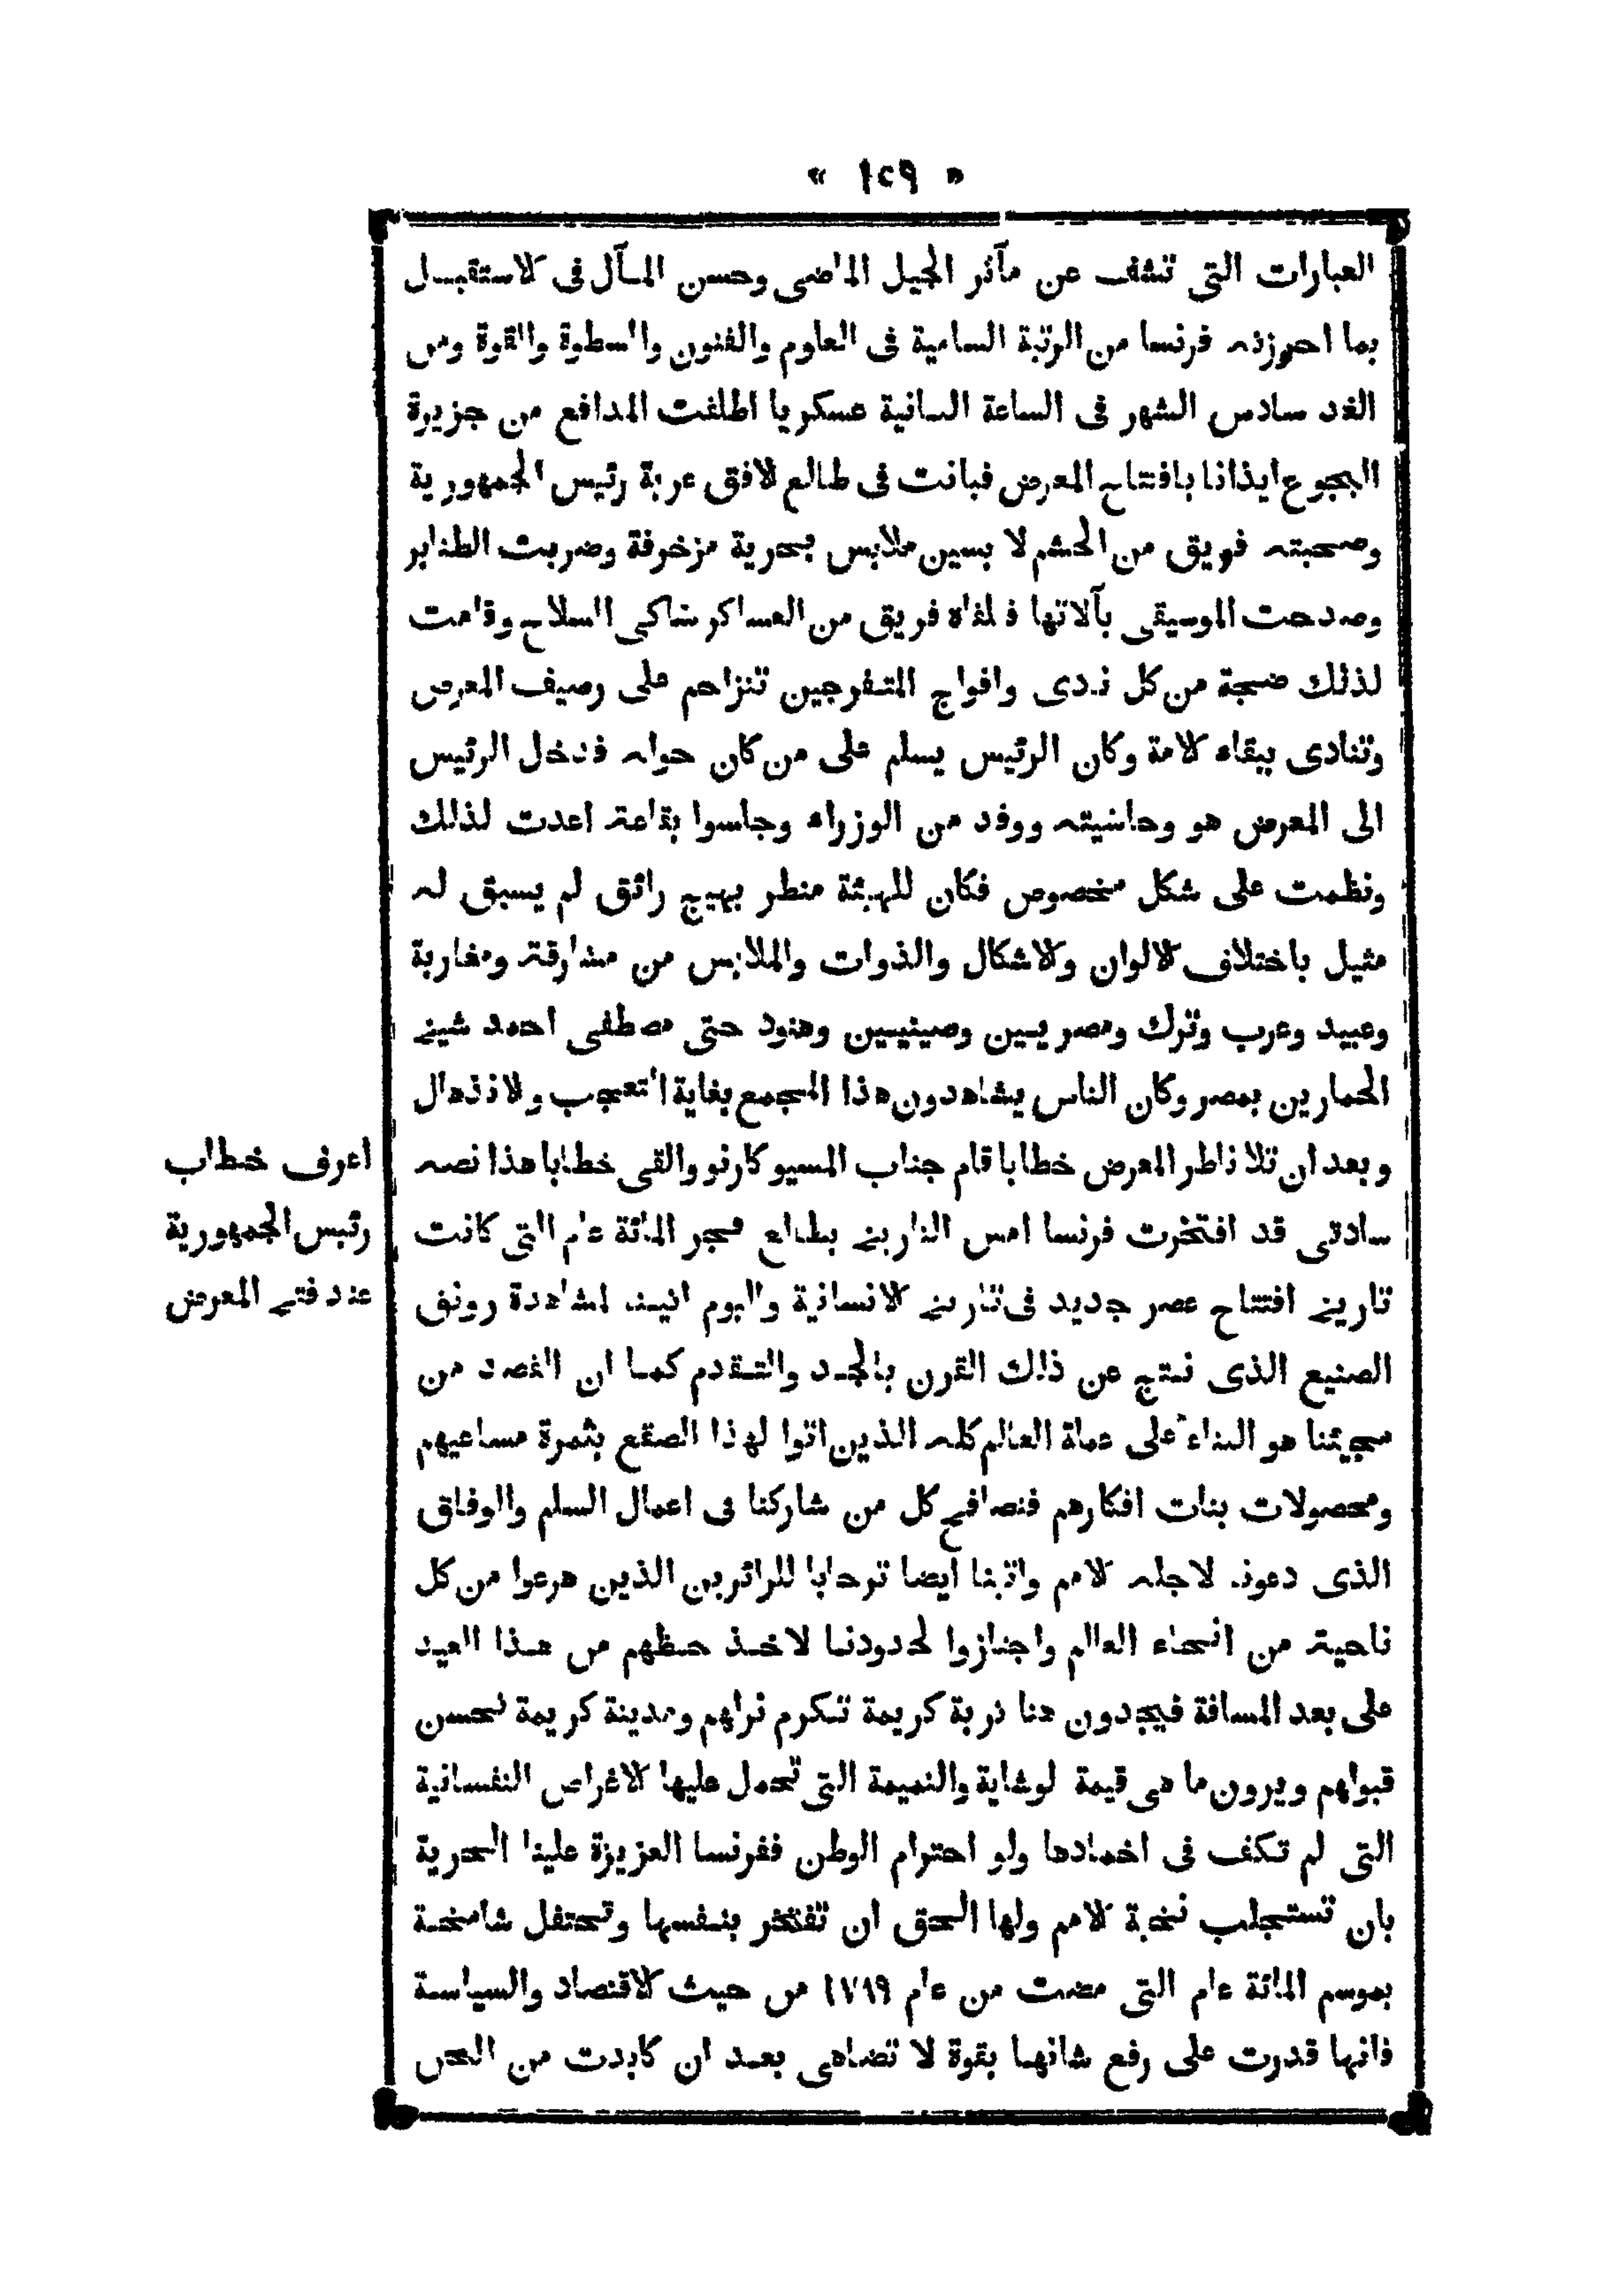 « ١٢٩ »
العبارات التى تشف عن مآثر الجيل الماضى وحسن المآل فى الاستقبال
بما احرزته فرنسا من الرتبة السامية فى العلوم والفنون والسطوة والقوة ومن
الغد سادس الشهر فى الساعة الثانية عسكريا اطلقت المدافع من جزيرة
ايذانا بافتتاح المعرض فبانت فى طالع الافق عربة رئيس الجمهورية
وصحبته فريق من الحشم لا بسين ملابس بحرية مزخرفة وضربت الطنابر
وصدحت الموسيقى بآلاتها فلقاه فريق من العساكر شاكى السلاح وقامت
لذلك ضجة من كل ندى وافواج المتفرجين تنزاحم على رصيف المعرض
وتنادى ببقاء الامة وكان الرئيس يسلم على من كان حوله فدخل الرئيس
الى المعرض هو وحاشيته ووفد من الوزراء وجلسوا بقاعة اعدت لذلك
ونظمت على شكل مخصوص فكان للهيئة منظر بهيج رائق لم يسبق له
مثيل باختلاف الالوان والاشكال والذوات والملابس من مشارقة ومغاربة
وعبيد وعرب وترك ومصريين وصينيين وهنود حتى مصطفى احمد شيخ
الحمارين بمصر وكان الناس يشاهدون هذا المجمع بغاية التعجب والانذهال
وبعد ان تلا ناظر المعرض خطابا قام جناب المسيو كارنو والقى خطابا هذا نصه
سادتى قد افتخرت فرنسا امس التاريخ بطلع فجر المائة عام التى كانت
تاريخ افتتاح عصر جديد فى تاريخ الانسانية واليوم اتينا لمشاهدة رونق
الصنيع الذى نتج عن ذلك القرن بالجد والتقدم كما ان القصد من
مجيئنا هو الثناء على عملة العالم كله الذين اتوا لهذا الصقع بثمرة مساعيهم
ومحصولات بنات افكارهم فنصافح كل من شاركنا فى اعمال السلم والوفاق
الذى دعونا لاجله الامم واتينا ايضا ترحابا للزائرين الذين هرعوا من كل
ناحية من انحاء العالم واجتازوا لحدودنا لاخذ حظهم من هذا العيد
على بعد المسافة فيجدون هنا تربة كريمة تكرم نزلهم ومدينة كريمة تحسن
قبولهم ويرون ما هى قيمة الوشاية والنميمة التى تحمل عليها الاغراض النفسانية
التى لم تكف فى اخمادها ولو احترام الوطن ففرنسا العزيزة علينا الحرية
بان تستجلب نخبة الامم ولها الحق ان تفتخر بنفسها وتحتفل شامخة
بموسم المائة عام التى مضت من عام ١٧٨٩ من حيث الاقتصاد والسياسة
فانها قدرت على رفع شانها بقوة لا تضاهى بعد ان كابدت من المحن
اعرف خطاب
رئيس الجمهورية
عند فتح المعرض